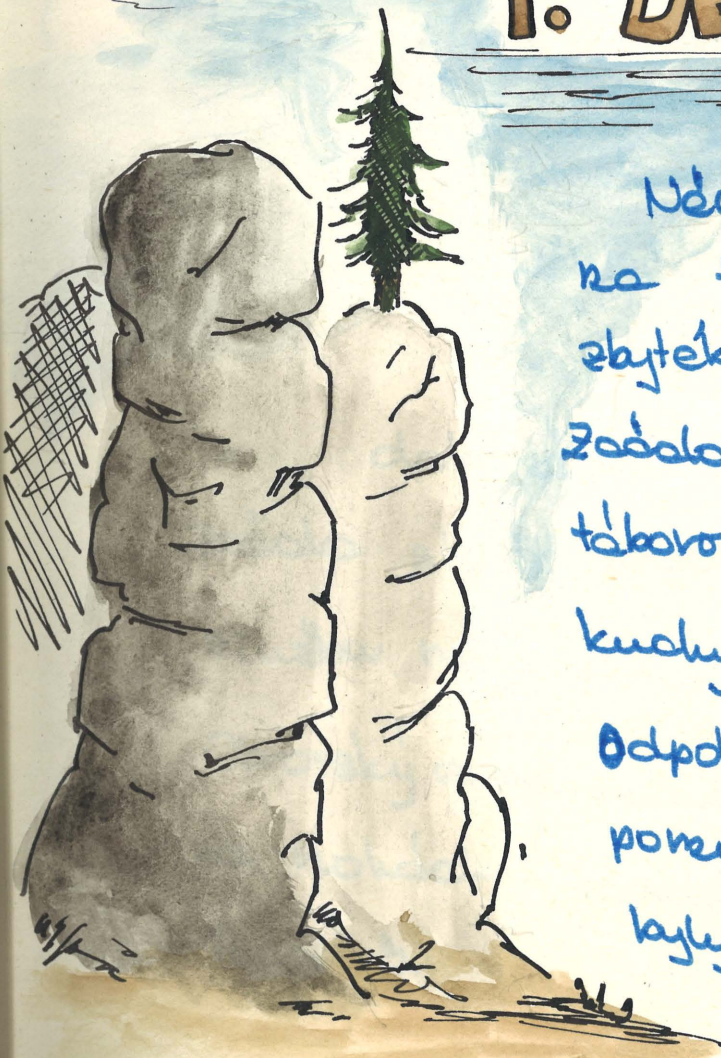 1. D
Ná
na
zbyték
Začalo
táboro
kuchy
Odpo
poran
byly